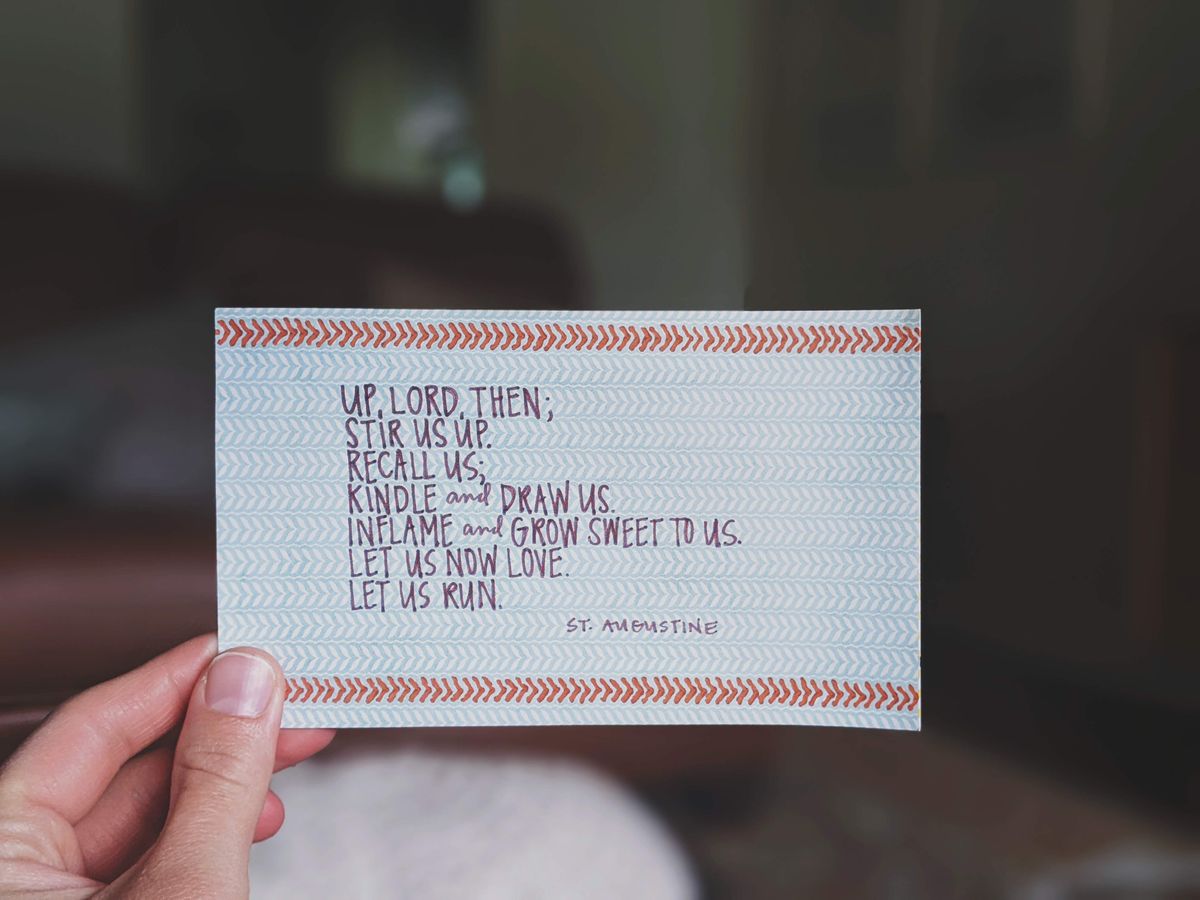 UP, LORD, THEN;
STIR US UP.
RECALL US;
KINDLE and DRAW US.
INFLAME and GROW SWEET TO US.
LET US NOW LOVE.
LET US RUN.
ST. AUGUSTINE